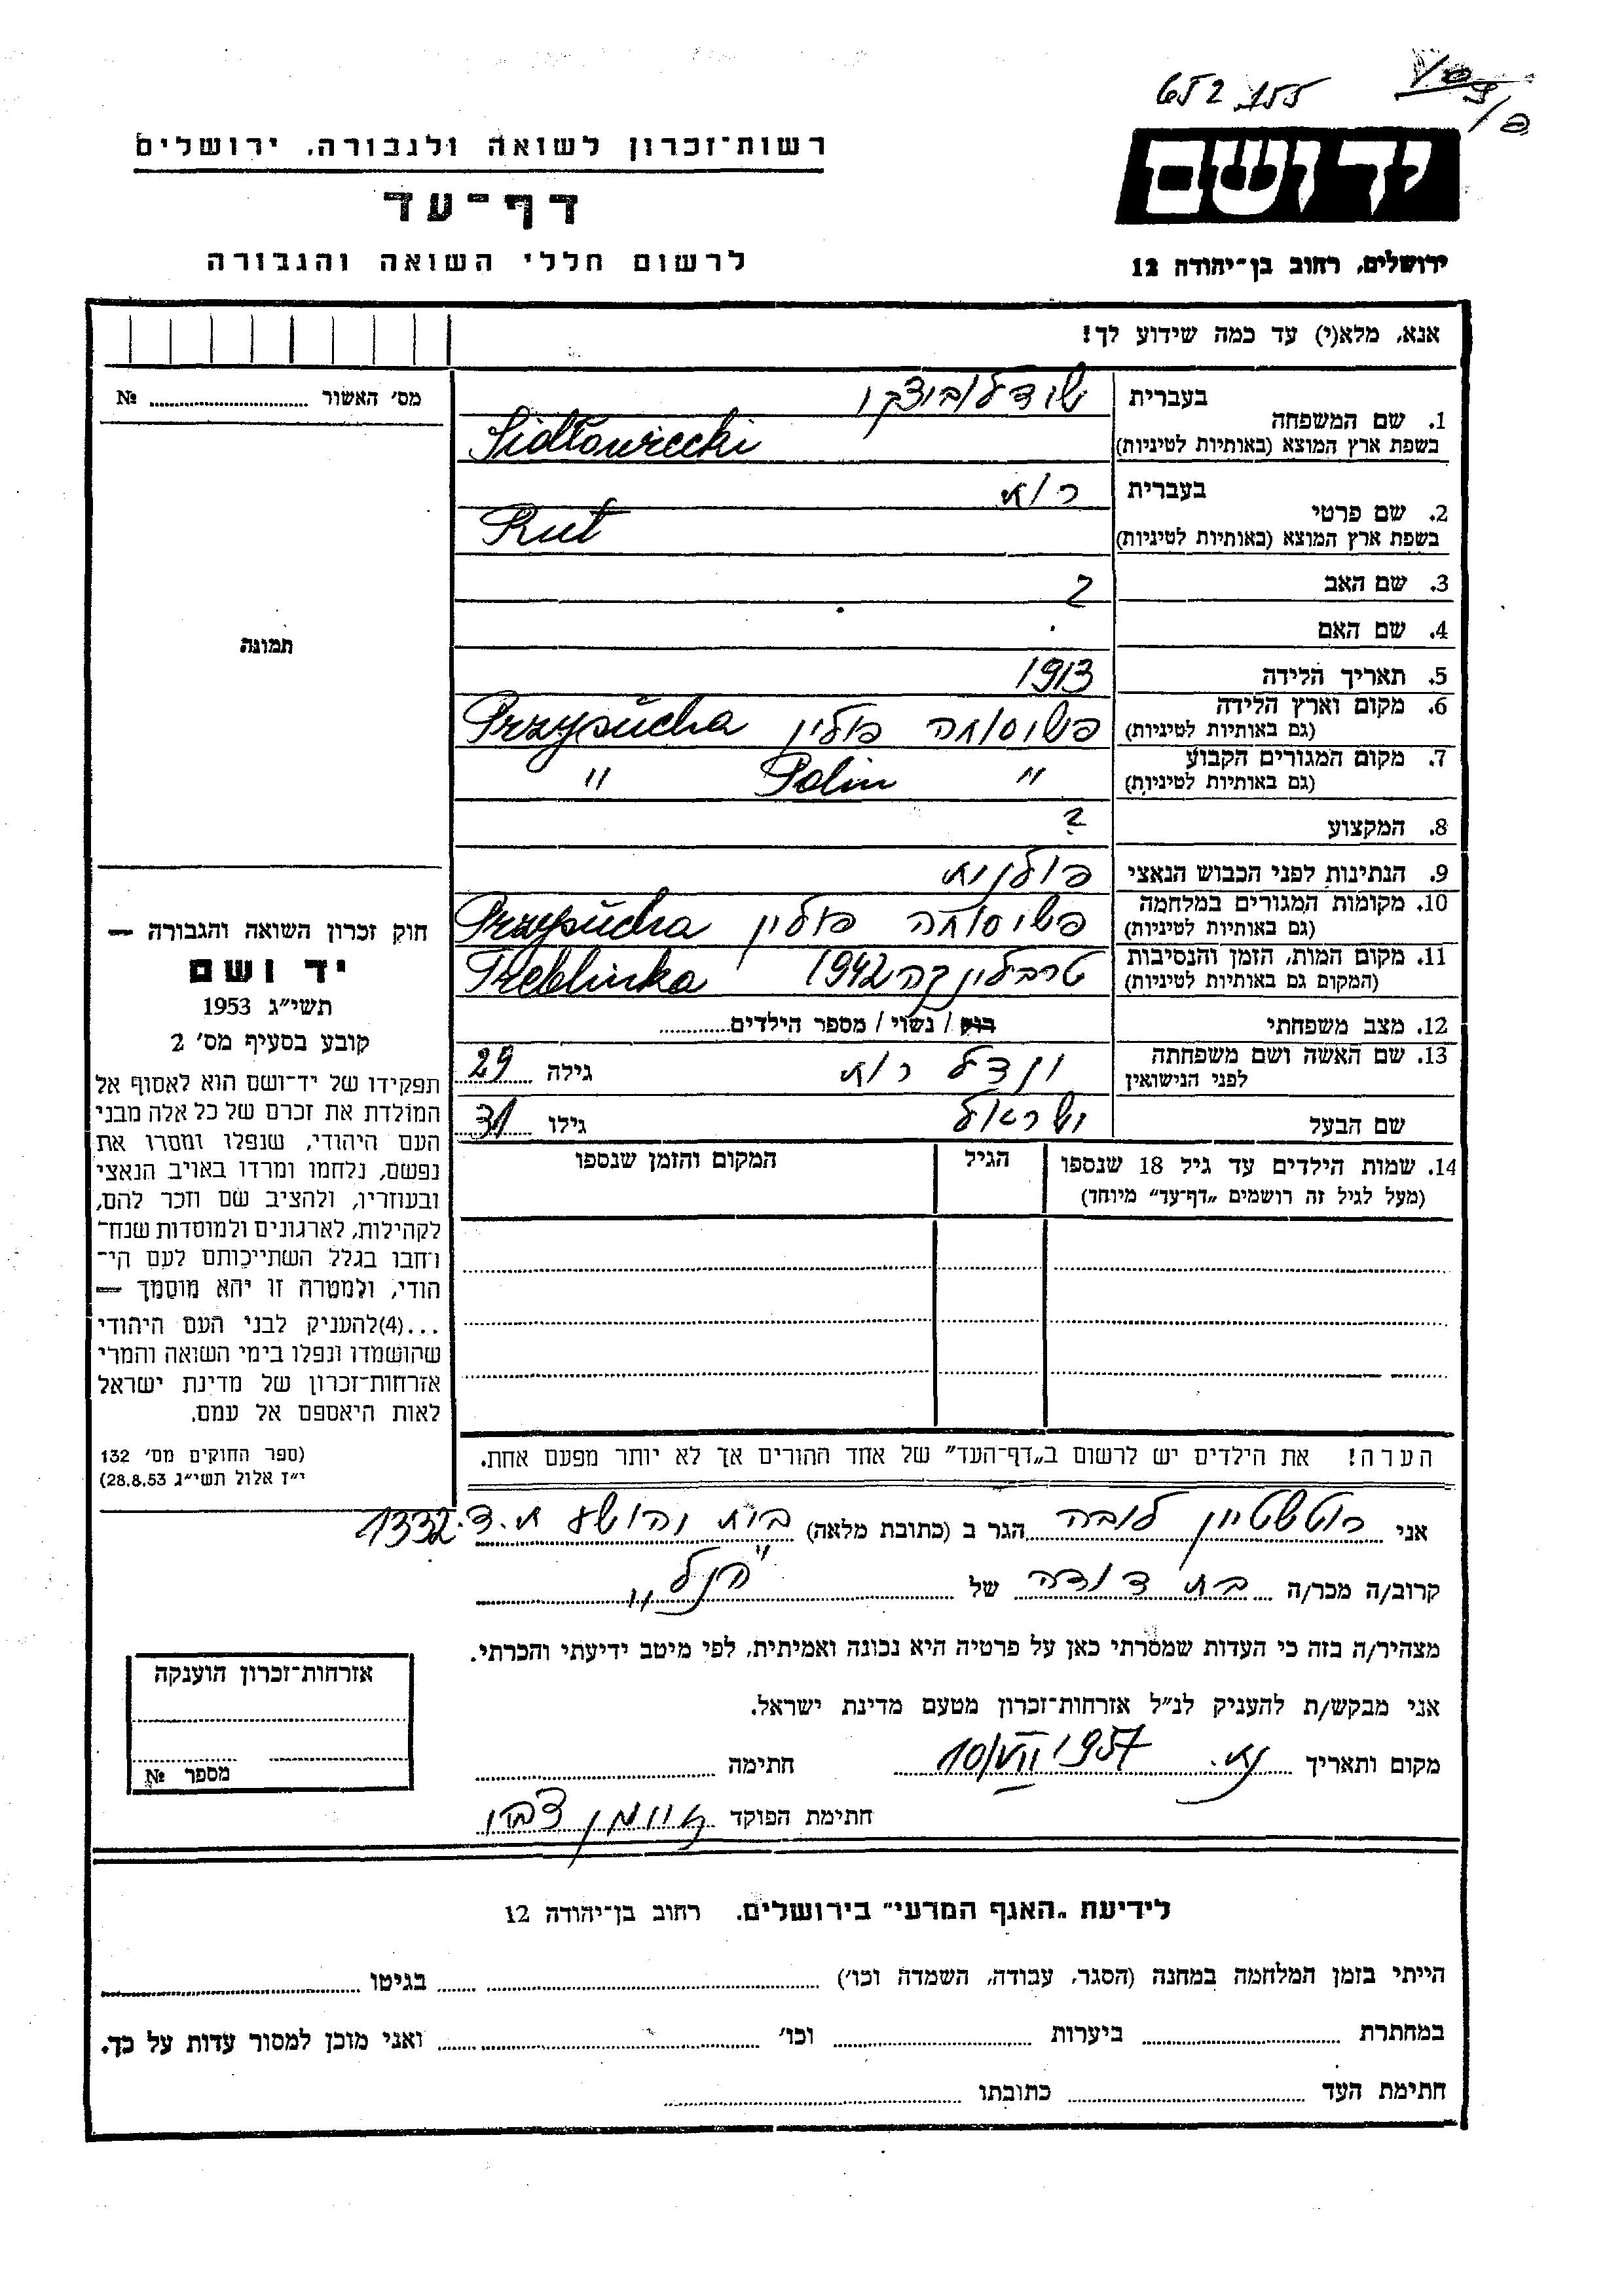 652 155
רשות־זכרון לשואה ולגבורה, ירושלים
יד ושם
דף־עד
לרשום חללי השואה והגבורה
ירושלים, רחוב בן־יהודה 12
אנא, מלא(י) עד כמה שידוע לך!
מס׳ האשור № ........
1. שם המשפחה
בעברית שידלוביצקי
בשפת ארץ המוצא (באותיות לטיניות) Sidłowiecki
2. שם פרטי
בעברית רות
בשפת ארץ המוצא (באותיות לטיניות) Rut
3. שם האב ?
4. שם האם
5. תאריך הלידה 1913
6. מקום וארץ הלידה
(גם באותיות לטיניות) פשיסוחה פולין Przysucha
7. מקום המגורים הקבוע
(גם באותיות לטיניות) " Polin "
8. המקצוע ?
9. הנתינות לפני הכבוש הנאצי פולנית
10. מקומות המגורים במלחמה
(גם באותיות לטיניות) פשיסוחה פולין Przysucha
11. מקום המות, הזמן והנסיבות
(המקום גם באותיות לטיניות) טרבלינקה 1942 Treblinka
12. מצב משפחתי רוק / נשוי / מספר הילדים........
13. שם האשה ושם משפחתה
לפני הנישואין רות גילה 29
שם הבעל ישראל גילו 31
14. שמות הילדים עד גיל 18 שנספו הגיל המקום והזמן שנספו
(מעל לגיל זה רושמים „דף־עד״ מיוחד)
הערה! את הילדים יש לרשום ב„דף־העד״ של אחד ההורים אך לא יותר מפעם אחת.
תמונה
חוק זכרון השואה והגבורה —
יד ושם
תשי״ג 1953
קובע בסעיף מס׳ 2
תפקידו של יד־ושם הוא לאסוף אל
המולדת את זכרם של כל אלה מבני
העם היהודי, שנפלו ומסרו את
נפשם, נלחמו ומרדו באויב הנאצי
ובעוזריו, ולהציב שם וזכר להם,
לקהילות, לארגונים ולמוסדות שנח־
רחבו בגלל השתייכותם לעם הי־
הודי, ולמטרה זו יהא מוסמך —
...(4)להעניק לבני העם היהודי
שהושמדו ונפלו בימי השואה והמרי
אזרחות־זכרון של מדינת ישראל
לאות היאספם אל עמם.
(ספר החוקים מס׳ 132
י״ז אלול תשי״ג 28.8.53)
אני רוטשטיין לובה הגר ב (כתובת מלאה) בית יהושע ת.ד. 1332
קרוב/ה מכר/ה בת דודה של הנ"ל
מצהיר/ה בזה כי העדות שמסרתי כאן על פרטיה היא נכונה ואמיתית, לפי מיטב ידיעתי והכרתי.
אני מבקש/ת להעניק לנ״ל אזרחות־זכרון מטעם מדינת ישראל.
מקום ותאריך 10/VII 1957 חתימה ........
חתימת הפוקד
אזרחות־זכרון הוענקה
מספר №
לידיעת „האגף המדעי״ בירושלים, רחוב בן־יהודה 12
הייתי בזמן המלחמה במחנה (הסגר, עבודה, השמדה וכו׳) ........ בגיטו ........
במחתרת ........ ביערות ........ וכו׳ ........ ואני מוכן למסור עדות על כך.
חתימת העד ........ כתובתו ........